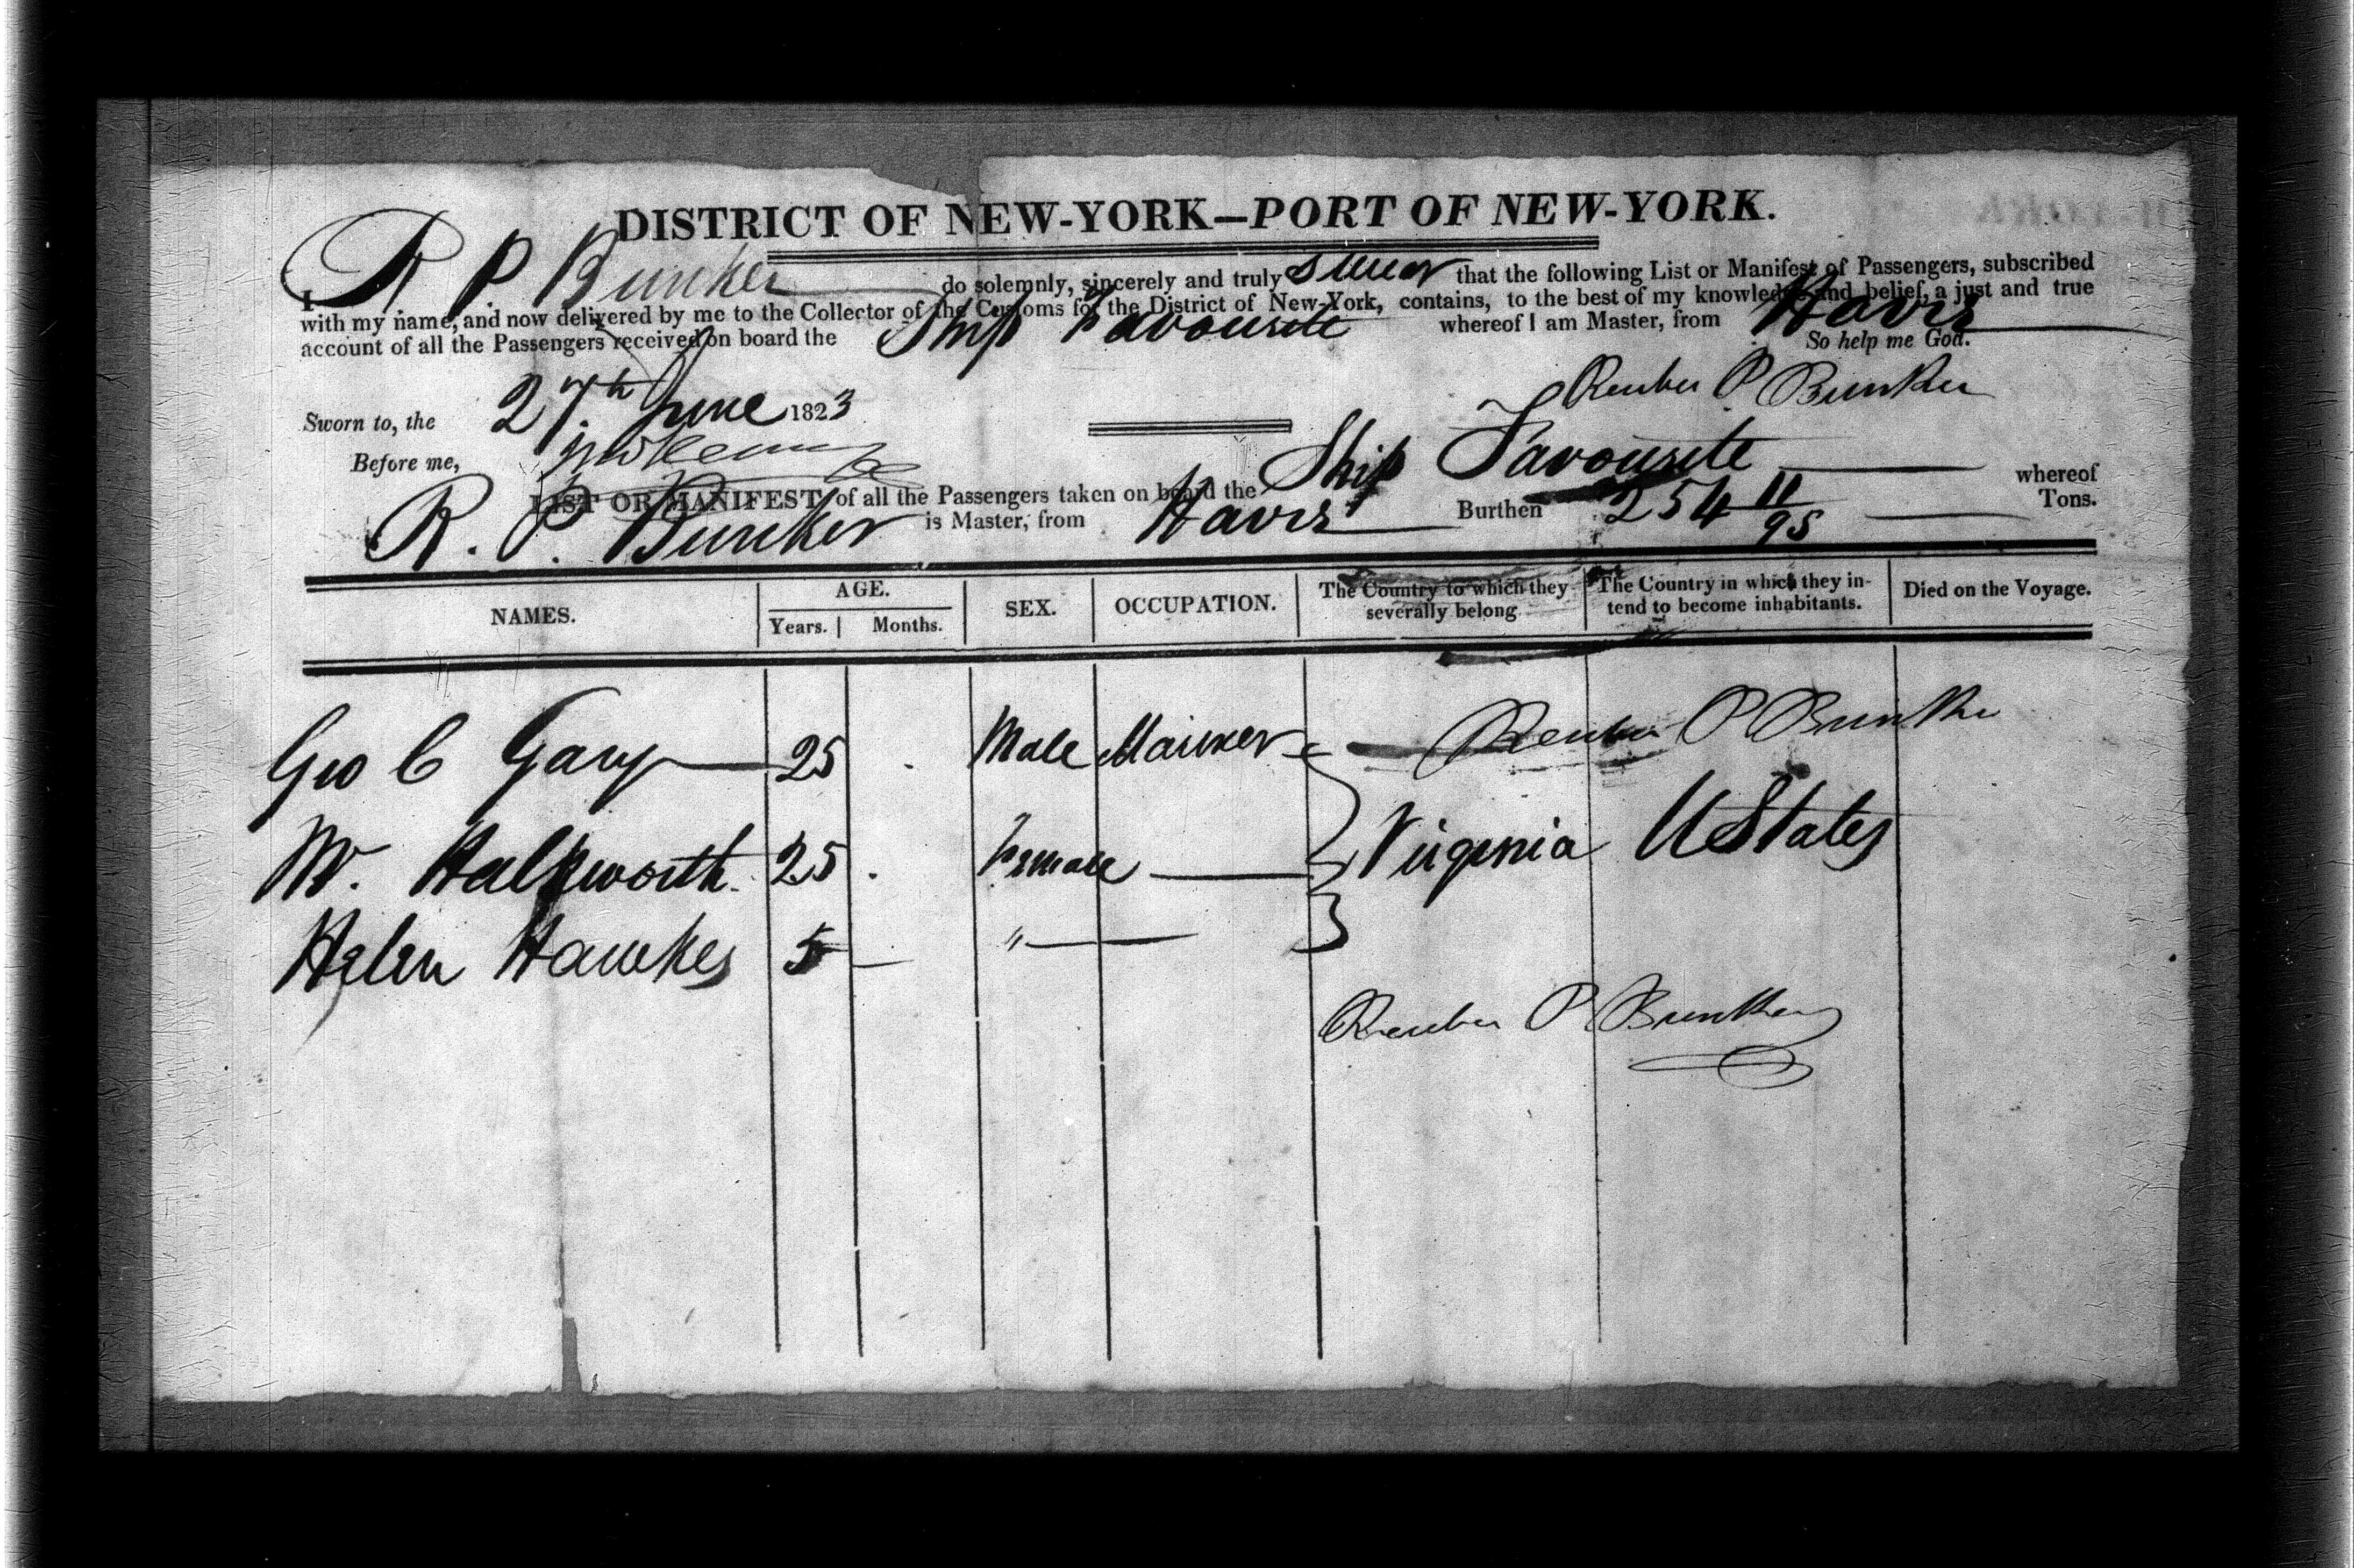 DISTRICT OF NEW-YORK—PORT OF NEW-YORK.
I R. P Bunker do solemnly, sincerely and truly swear that the following List or Manifest of Passengers, subscribed
with my name, and now delivered by me to the Collector of the Customs for the District of New-York, contains, to the best of my knowledge and belief, a just and true
account of all the Passengers received on board the Ship Favourite whereof I am Master, from Havre
So help me God.
Sworn to, the 27th June 1823
Reuben P Bunker
Before me,
LIST OR MANIFEST of all the Passengers taken on board the Ship Favourite whereof
R. P. Bunker is Master, from Havre Burthen 254 11/95 Tons.
NAMES. AGE. Years. Months. SEX. OCCUPATION. The Country to which they severally belong The Country in which they intend to become inhabitants. Died on the Voyage.
Reuben P Bunker
Geo C Gary 25 Male Mariner
M. 25 Female Virginia UStates
Helen Hawkes 5 "
Reuben P Bunker